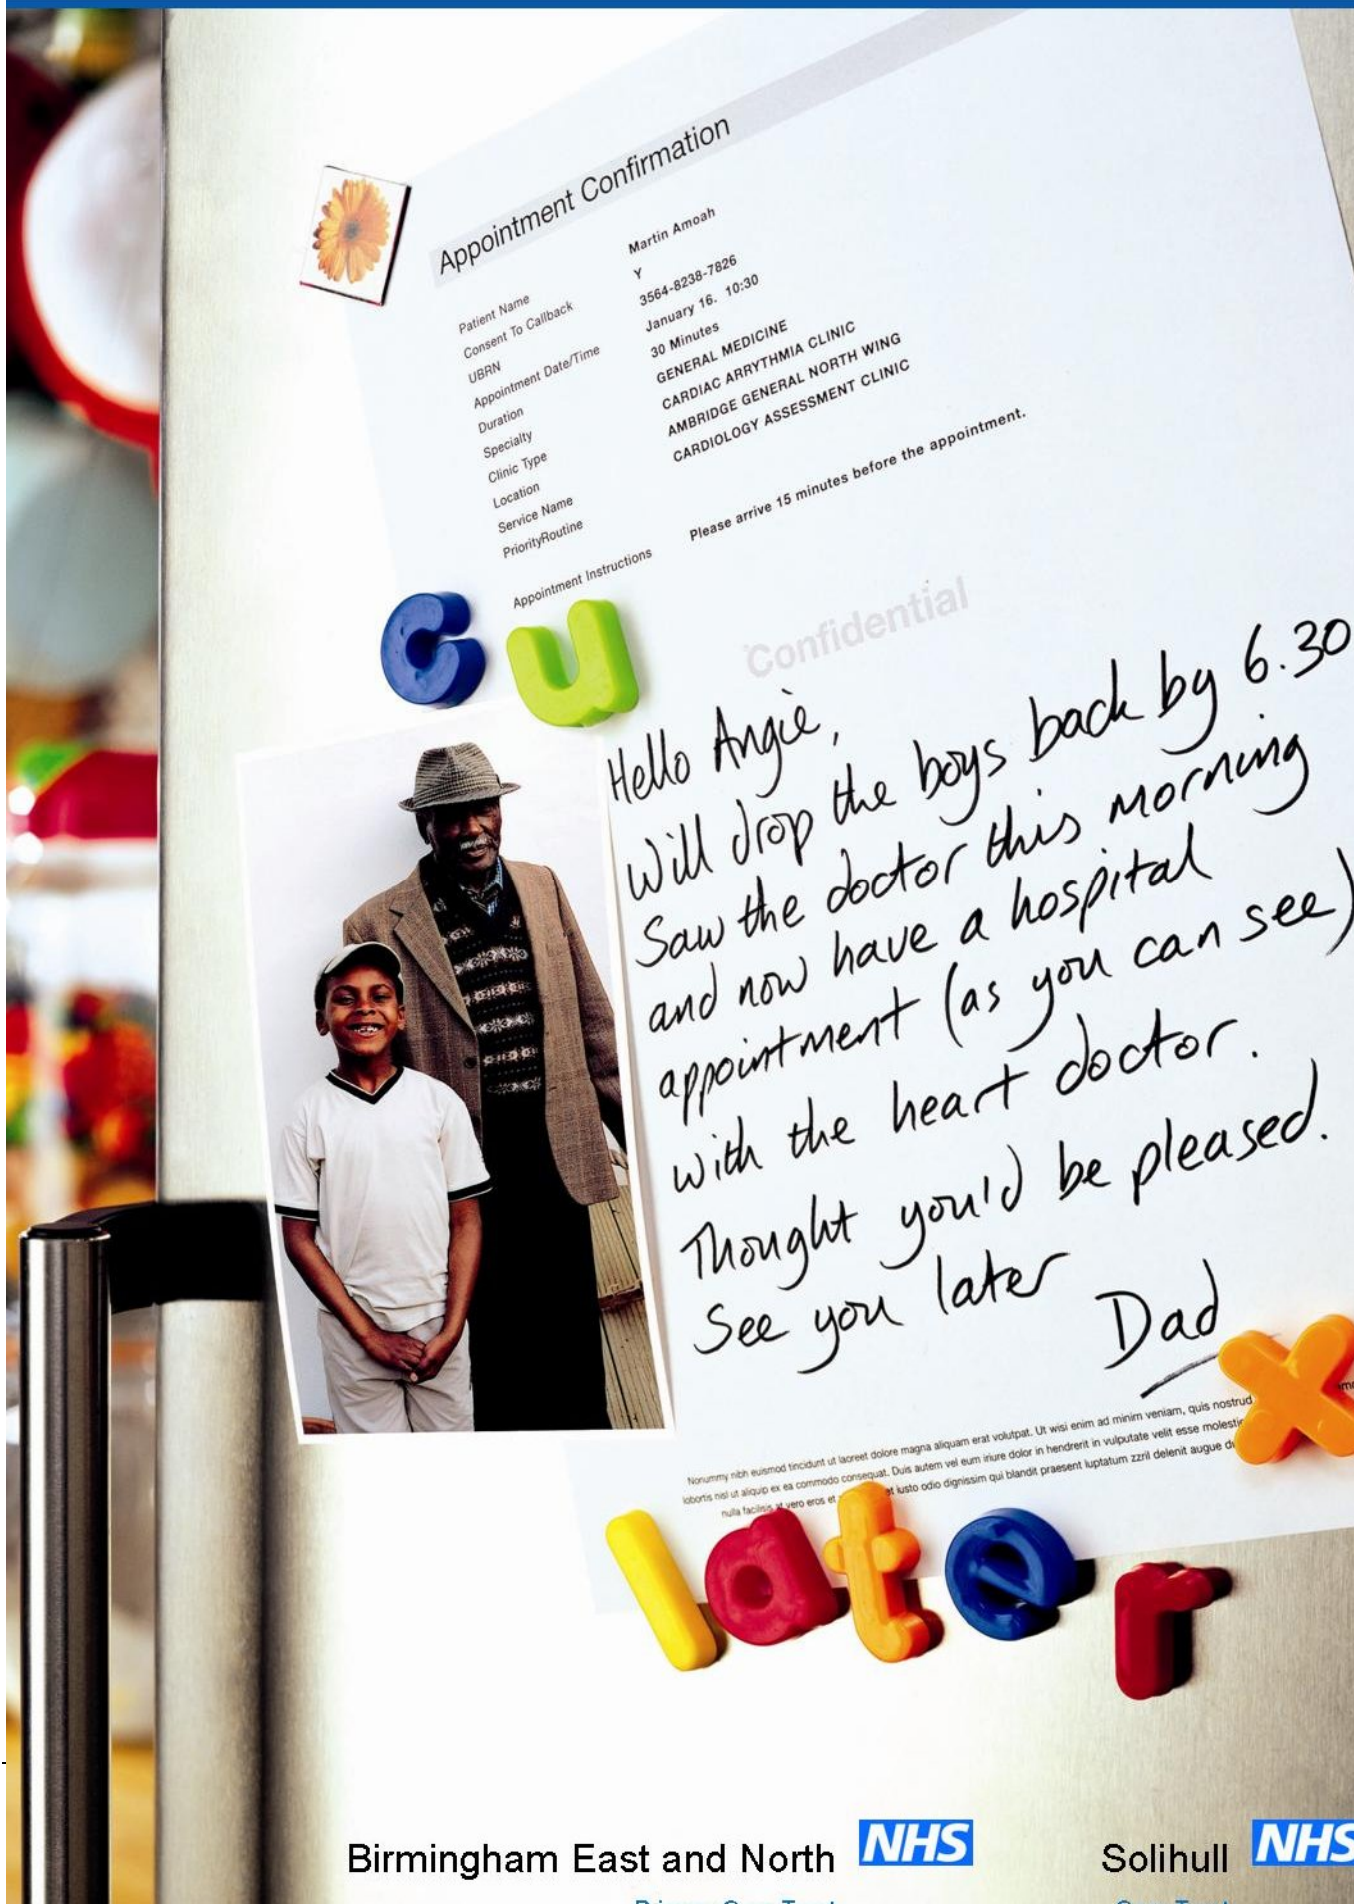 Appointment Confirmation
Patient Name Martin Amoah
Consent To Callback Y
UBRN 3564-8238-7826
Appointment Date/Time January 16. 10:30
Duration 30 Minutes
Specialty GENERAL MEDICINE
Clinic Type CARDIAC ARRYTHMIA CLINIC
Location AMBRIDGE GENERAL NORTH WING
Service Name CARDIOLOGY ASSESSMENT CLINIC
PriorityRoutine
Appointment Instructions Please arrive 15 minutes before the appointment.
Confidential
cu
Hello Angie,
Will drop the boys back by 6.30
Saw the doctor this morning
and now have a hospital
appointment (as you can see)
with the heart doctor.
Thought you'd be pleased.
See you later
Dad
x
Nonummy nibh euismod tincidunt ut laoreet dolore magna aliquam erat volutpat. Ut wisi enim ad minim veniam, quis nostrud
lobortis nisl ut aliquip ex ea commodo consequat. Duis autem vel eum iriure dolor in hendrerit in vulputate velit esse
nulla facilisis at vero eros et iusto odio dignissim qui blandit praesent luptatum zzril delenit augue
later
Birmingham East and North NHS Solihull NHS